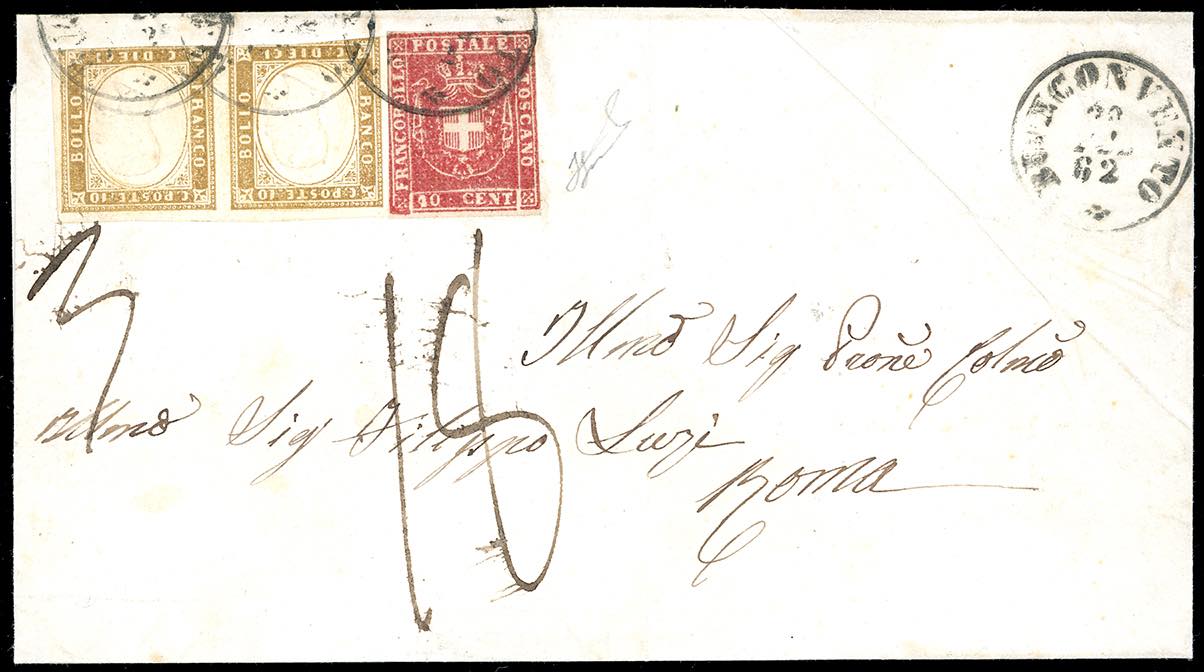 C. DIECI
BOLLO
FRANCO
C. POSTE 10
C. DIECI
BOLLO
FRANCO
C. POSTE 10
POSTALE
FRANCOBOLLO
TOSCANO
40 CENT
BUONCONVENTO
62
3
18
Illmo Sig Prone Colmo
Illmo Sig Filippo Luzi
Roma